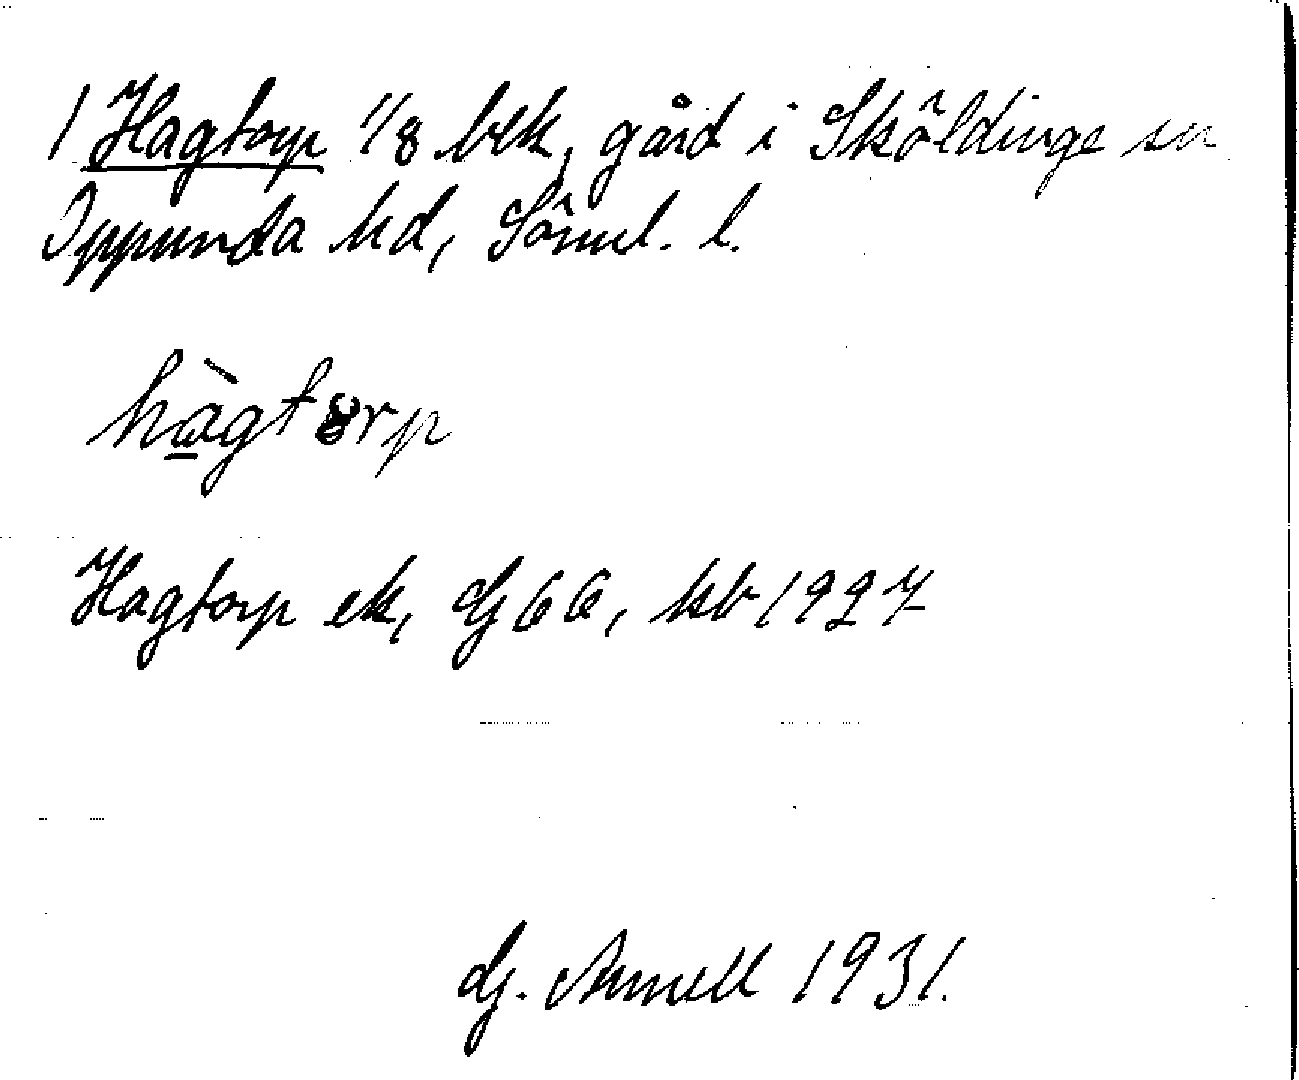 1 Hagtorp 1/8 blk, gård i Sköldinge sn
Oppunda hd, Söml. l.
hàgtorp
Hagtorp ek, dj 66, kb 1927
dj. Annell 1931.